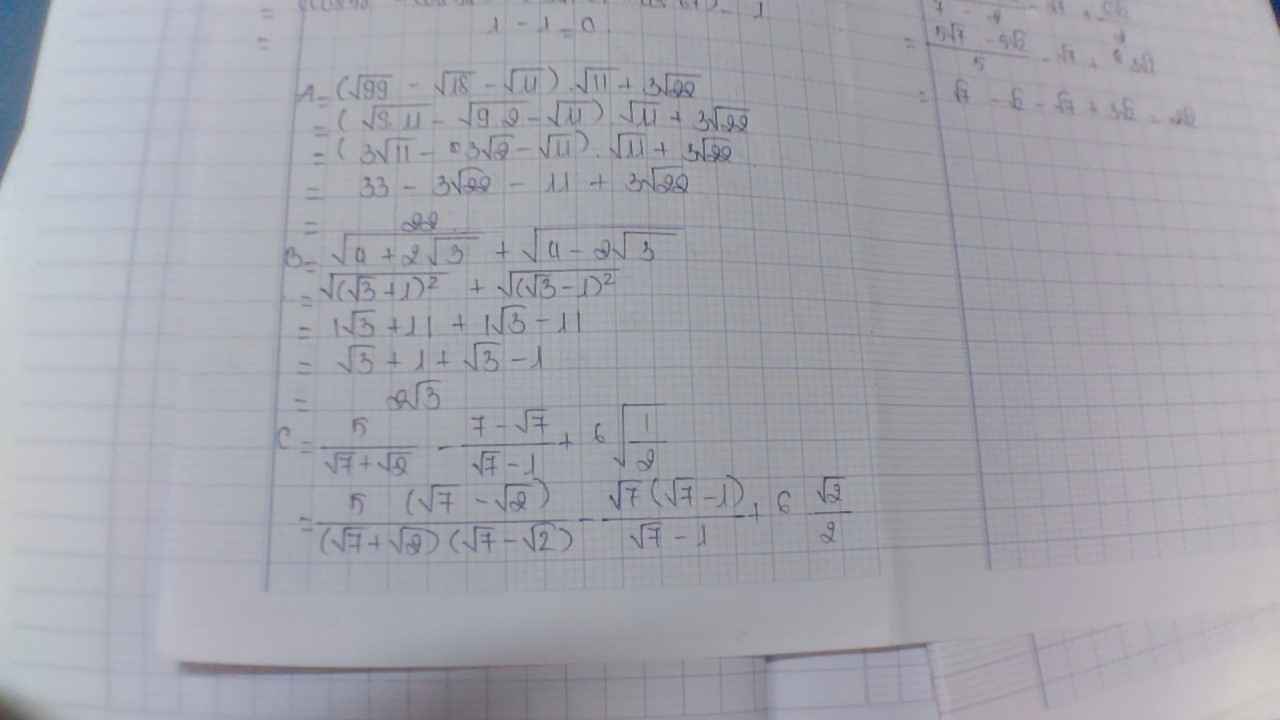 1 - 1 = 0
=
A = (√99 - √18 - √11) . √11 + 3√22
= (√9.11 - √9.2 - √11) √11 + 3√22
= (3√11 - 3√2 - √11) . √11 + 3√22
= 33 - 3√22 - 11 + 3√22
= 22
B = √(4 + 2√3) + √(4 - 2√3)
= √((√3 + 1)²) + √((√3 - 1)²)
= |√3 + 1| + |√3 - 1|
= √3 + 1 + √3 - 1
= 2√3
C = 5/(√7 + √2) - (7 - √7)/(√7 - 1) + 6√(1/2)
= 5(√7 - √2)/((√7 + √2)(√7 - √2)) - √7(√7 - 1)/(√7 - 1) + 6 √2/2
= (5√7 - 5√2)/5 - √7 + 3√2
= √7 - √2 - √7 + 3√2 = 2√2